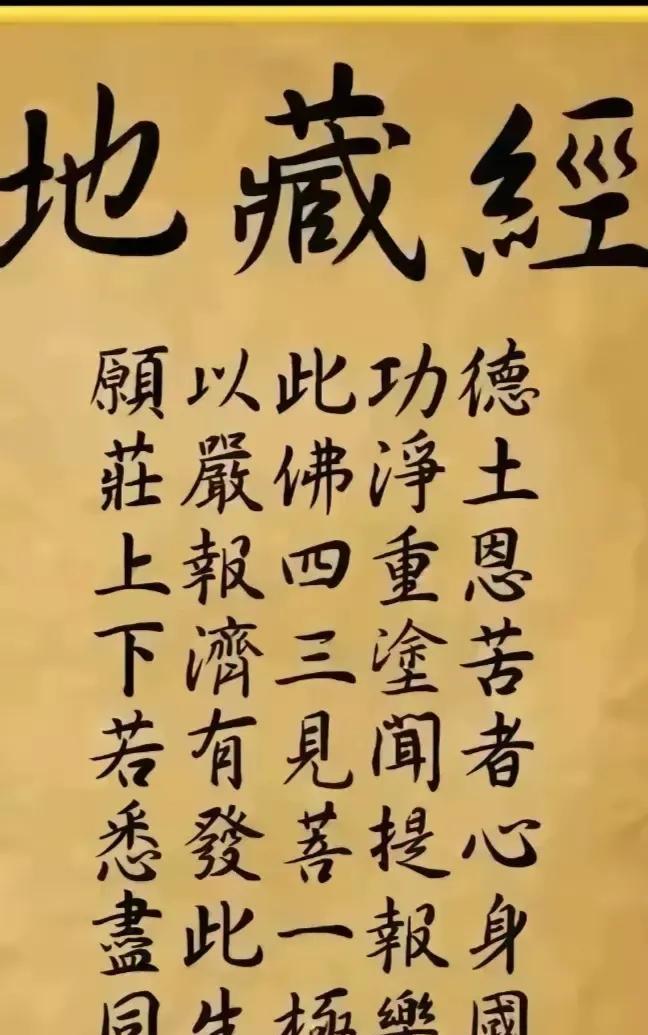 地藏經
願以此功德
莊嚴佛淨土
上報四重恩
下濟三塗苦
若有見聞者
悉發菩提心
盡此一報身
同生極樂國